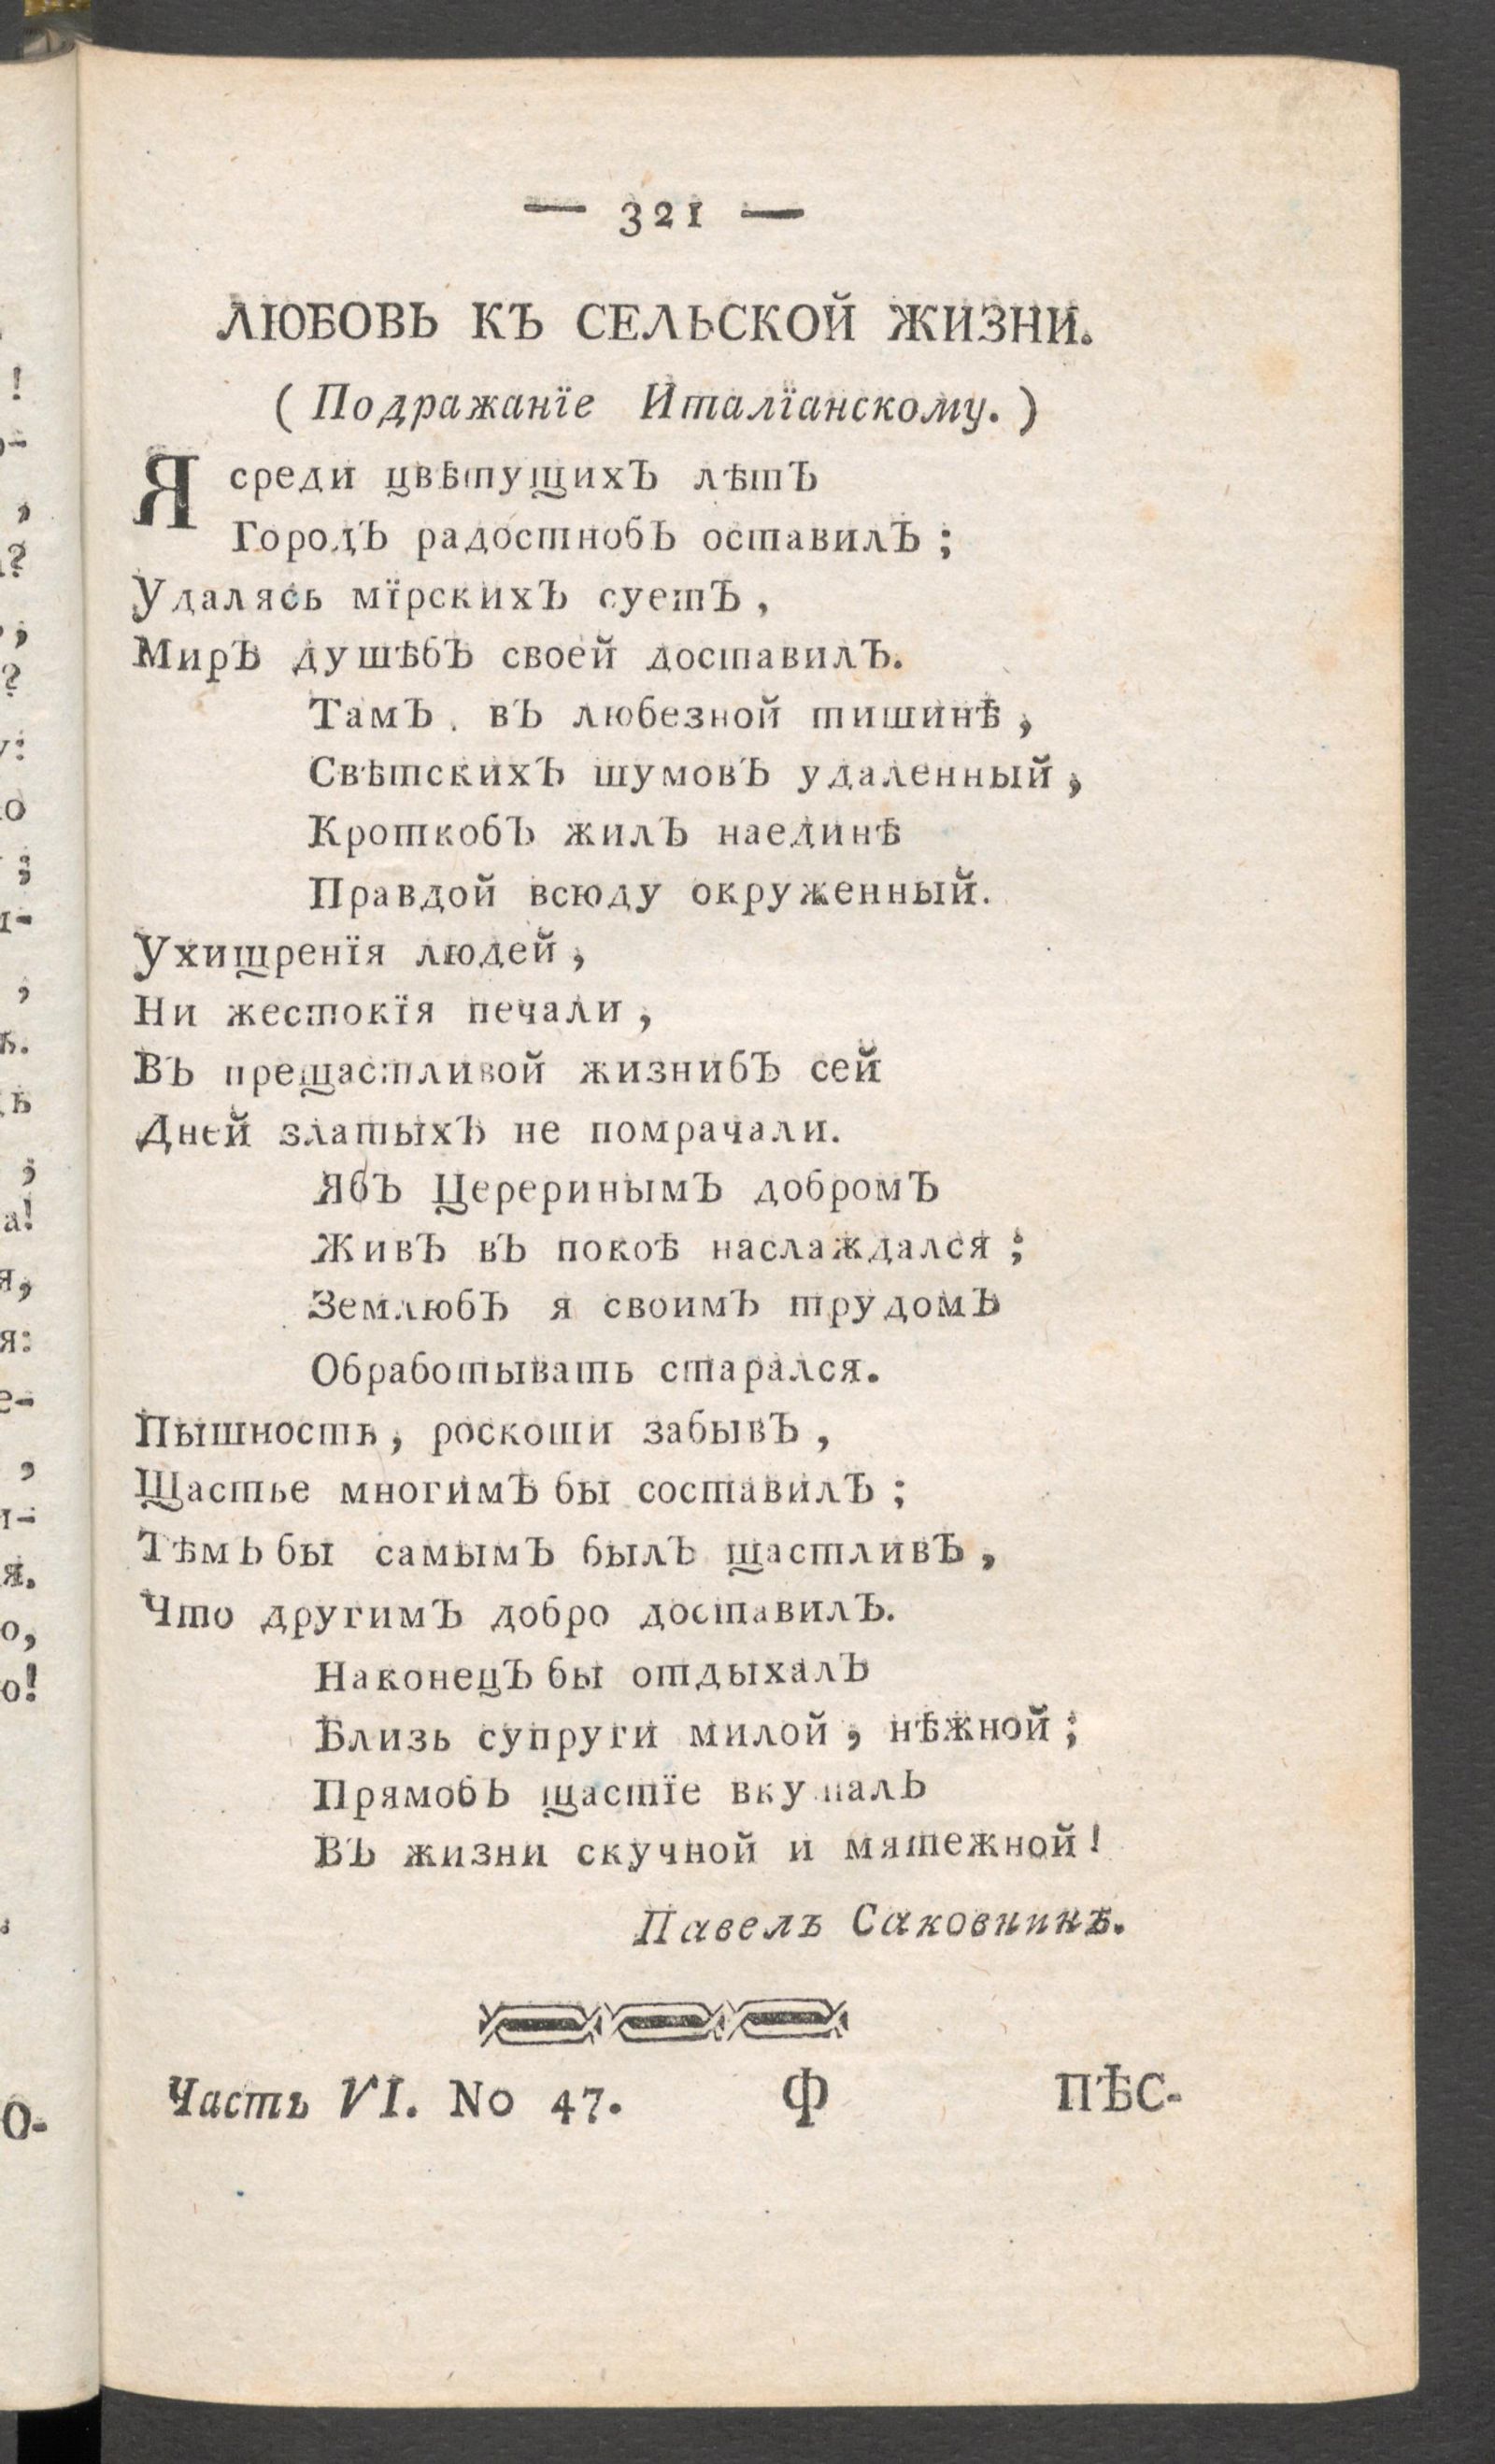 — 321 —
ЛЮБОВЬ КЪ СЕЛЬСКОЙ ЖИЗНИ.
(Подражанїе Италїанскому.)
Я среди цвѣтущихЪ лѣтЪ
ГородЪ радостнобЪ оставилЪ;
Удалясь мїрскихЪ суетЪ,
МирЪ душѣбЪ своей доставилЪ.
ТамЪ, вЪ любезной тишинѣ,
СвѣтскихЪ шумовЪ удаленный,
КроткобЪ жилЪ наединѣ
Правдой всюду окруженный.
Ухищренїя людей,
Ни жестокїя печали,
ВЪ прещастливой жизнибЪ сей
Дней златыхЪ не помрачали.
ЯбЪ ЦереринымЪ добромЪ
ЖивЪ вЪ покоѣ наслаждался;
ЗемлюбЪ я своимЪ трудомЪ
Обработывать старался.
Пышность, роскоши забывЪ,
Щастье многимЪ бы составилЪ;
ТѣмЪ бы самымЪ былЪ щастливЪ,
Что другимЪ добро доставилЪ.
НаконецЪ бы отдыхалЪ
Близь супруги милой, нѣжной;
ПрямобЪ щастїе вкушалЪ
ВЪ жизни скучной и мятежной!
Павелъ Саковнинъ.
Часть VI. No 47. Ф ПѢС-